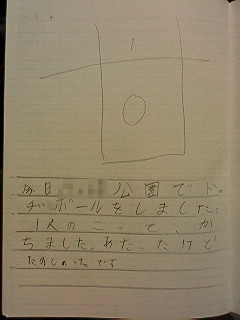 今日 公園でド。
チボールをしました。
1人のこって、か
ちました。あたったけど
たのしかったです